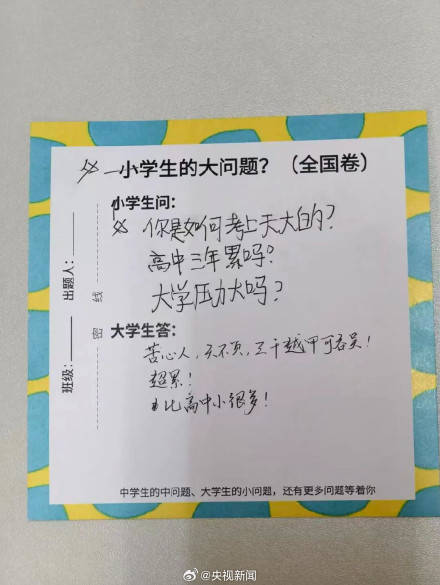 小学生的大问题？（全国卷）
小学生问：
你是如何考上天大的？
高中三年累吗？
大学压力大吗？
大学生答：
苦心人，天不负，三千越甲可吞吴！
超累！
比高中小很多！
出题人：
班级：
密
线
中学生的中问题、大学生的小问题，还有更多问题等着你
@央视新闻